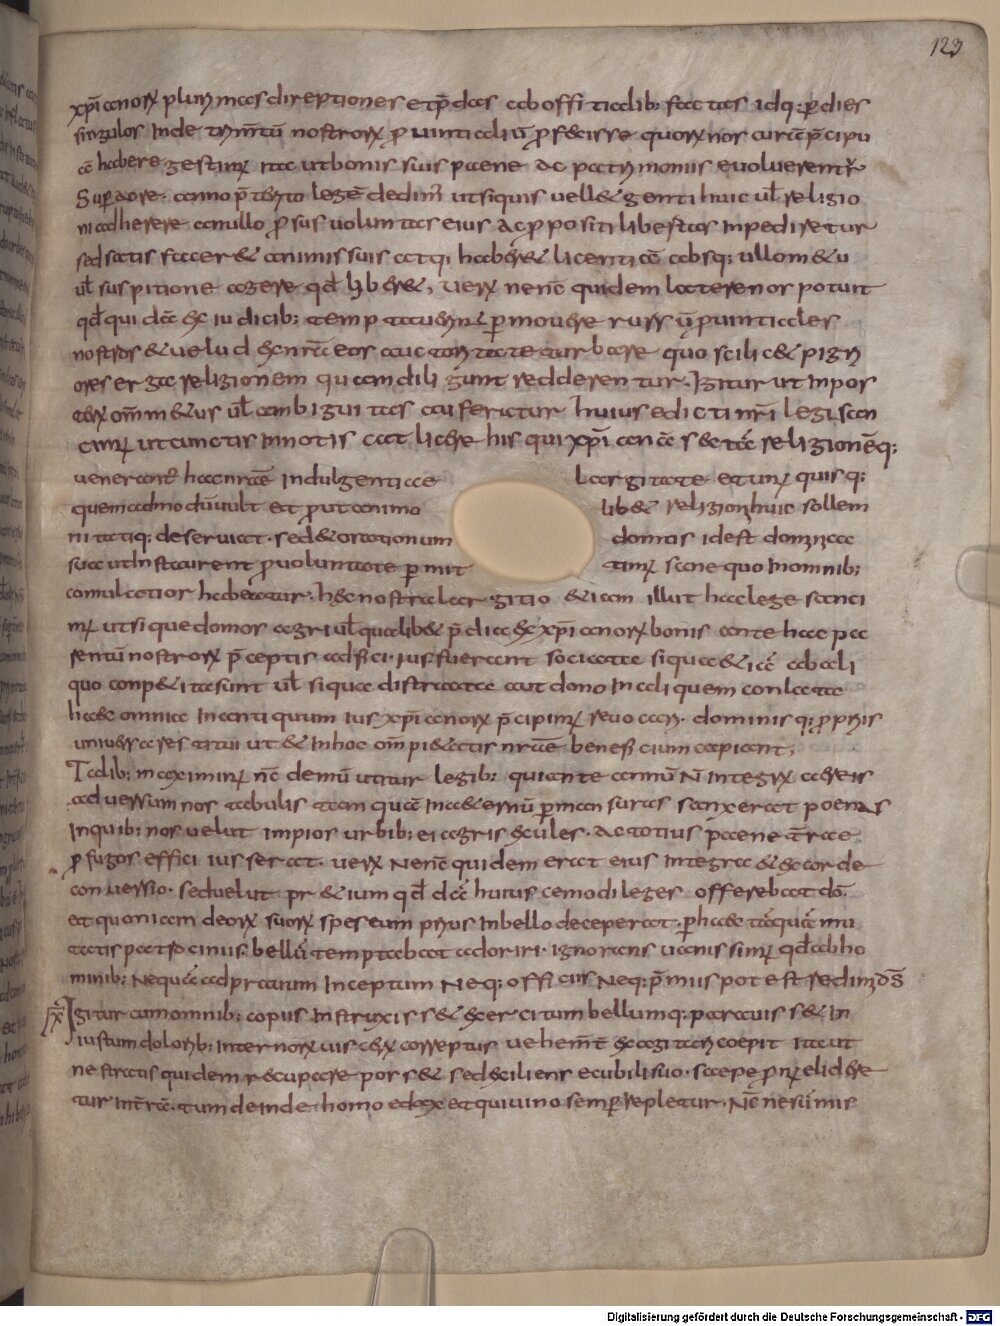 123
xp̄ianorꝝ plurimas direptiones et p̄das ab offitialib; factas idq; ꝑ dies
singulos inde trim̄tū nostrorꝝ ꝓuintialiū ꝓfecisse quorꝝ nos curā p̄cipu
ā habere gestimꝰ ita ut bonis suis paene ac patrimoniis euoluerentᷣ
Superiore anno p̄terito legē dedimꝰ ut siquis uellet genti huic ul̄ religio
ni adherere a nullo ꝓsus uoluntas eius ac ꝓpositi libertas inpediretur
sed satis faceret animis suis atq; haberet licentiā absq; ullo metu
ul̄ suspitione agere qd̄ liberet, uerꝝ nēc quidem latere nos potuit
qd̄ quidā ex iudicib; temptauerint ꝑmouere rursū ꝓuintiales
nostros et uelud contra eos auctoritate turbare quo scilicet pigri
ores erga religionem quam diligunt redderentur. Igitur ut inpos
terꝝ om̄ metus ul̄ ambiguitas auferatur huius edicti nr̄i legi san
cimꝰ ut cunctis innotiscat licere his qui xp̄ianā sectā religionēq;
uenerantᷣ hac nr̄ae indulgentiae largitate et unꝰ quisq;
quemadmodū uult et ꝓut animo libet religioni huic sollem
ni tatiq; deseruiat. sed et orationum domus id est dominicae
suae ut instaurent ꝓ uoluntate ꝑmittimꝰ sane quo in omnib;
cumulatior habeatur hec nostra largitio etiam illut hac lege sanci
mꝰ ut si que domos agri ul̄ quaelibet p̄dia ex xp̄ianorꝝ bonis ante hac pa
rentū nostrorꝝ p̄ceptis ad fisci ius fuerant sociata siqua etiā ab ali
quo conpetita sunt ul̄ si qua distracta aut dono in aliquem conlata
haec omnia in antiquum ius xp̄ianorꝝ p̄cipimꝰ reuocari. dominisq; ꝓpriis
uniuersa restitui ut et in hoc om̄ pietatis nr̄ae beneficium capiant;
Talib; maximinꝰ nc̄ demū utitur legib; qui ante annū ñ integrꝝ aereis
aduersum nos tabulis tam quā in aeternū ꝑmansuras sanxerat poenas
in quib; nos uelut impios urbib; ei agris exules. ac totius paene terrae
ꝓfugos effici iusserat. uerꝝ nēc quidem erat eius integra et ex corde
conuersio. sed uelut pretium qd̄dā huiuscemodi leges offerebat dō.
et quoniam deorꝝ suorꝝ spes eum prius in bello deceperat. ꝑ haec tāquā mu
tatis patrociniis bellā temptabat adoriri. ignorans uanissimꝰ qd̄ ab ho
minib; nequā ad prauum inceptum neq; officiis neq; p̄miis potest redimi ds̄
X Igitur cum omnib; copiis instruxisset exercitum bellumq; parauisset in
iustum dolorib; internorꝝ uiscerꝝ correptus uehem̄t exagitari coepit ita ut
ne stratis quidem recupare posset sed exiliens e cubili suo. saepe pronꝰ elidere
tur in t̄rā. tum deinde homo edax et qui uino semꝑ repletur. Nc̄ ne summis
Digitalisierung gefördert durch die Deutsche Forschungsgemeinschaft - DFG